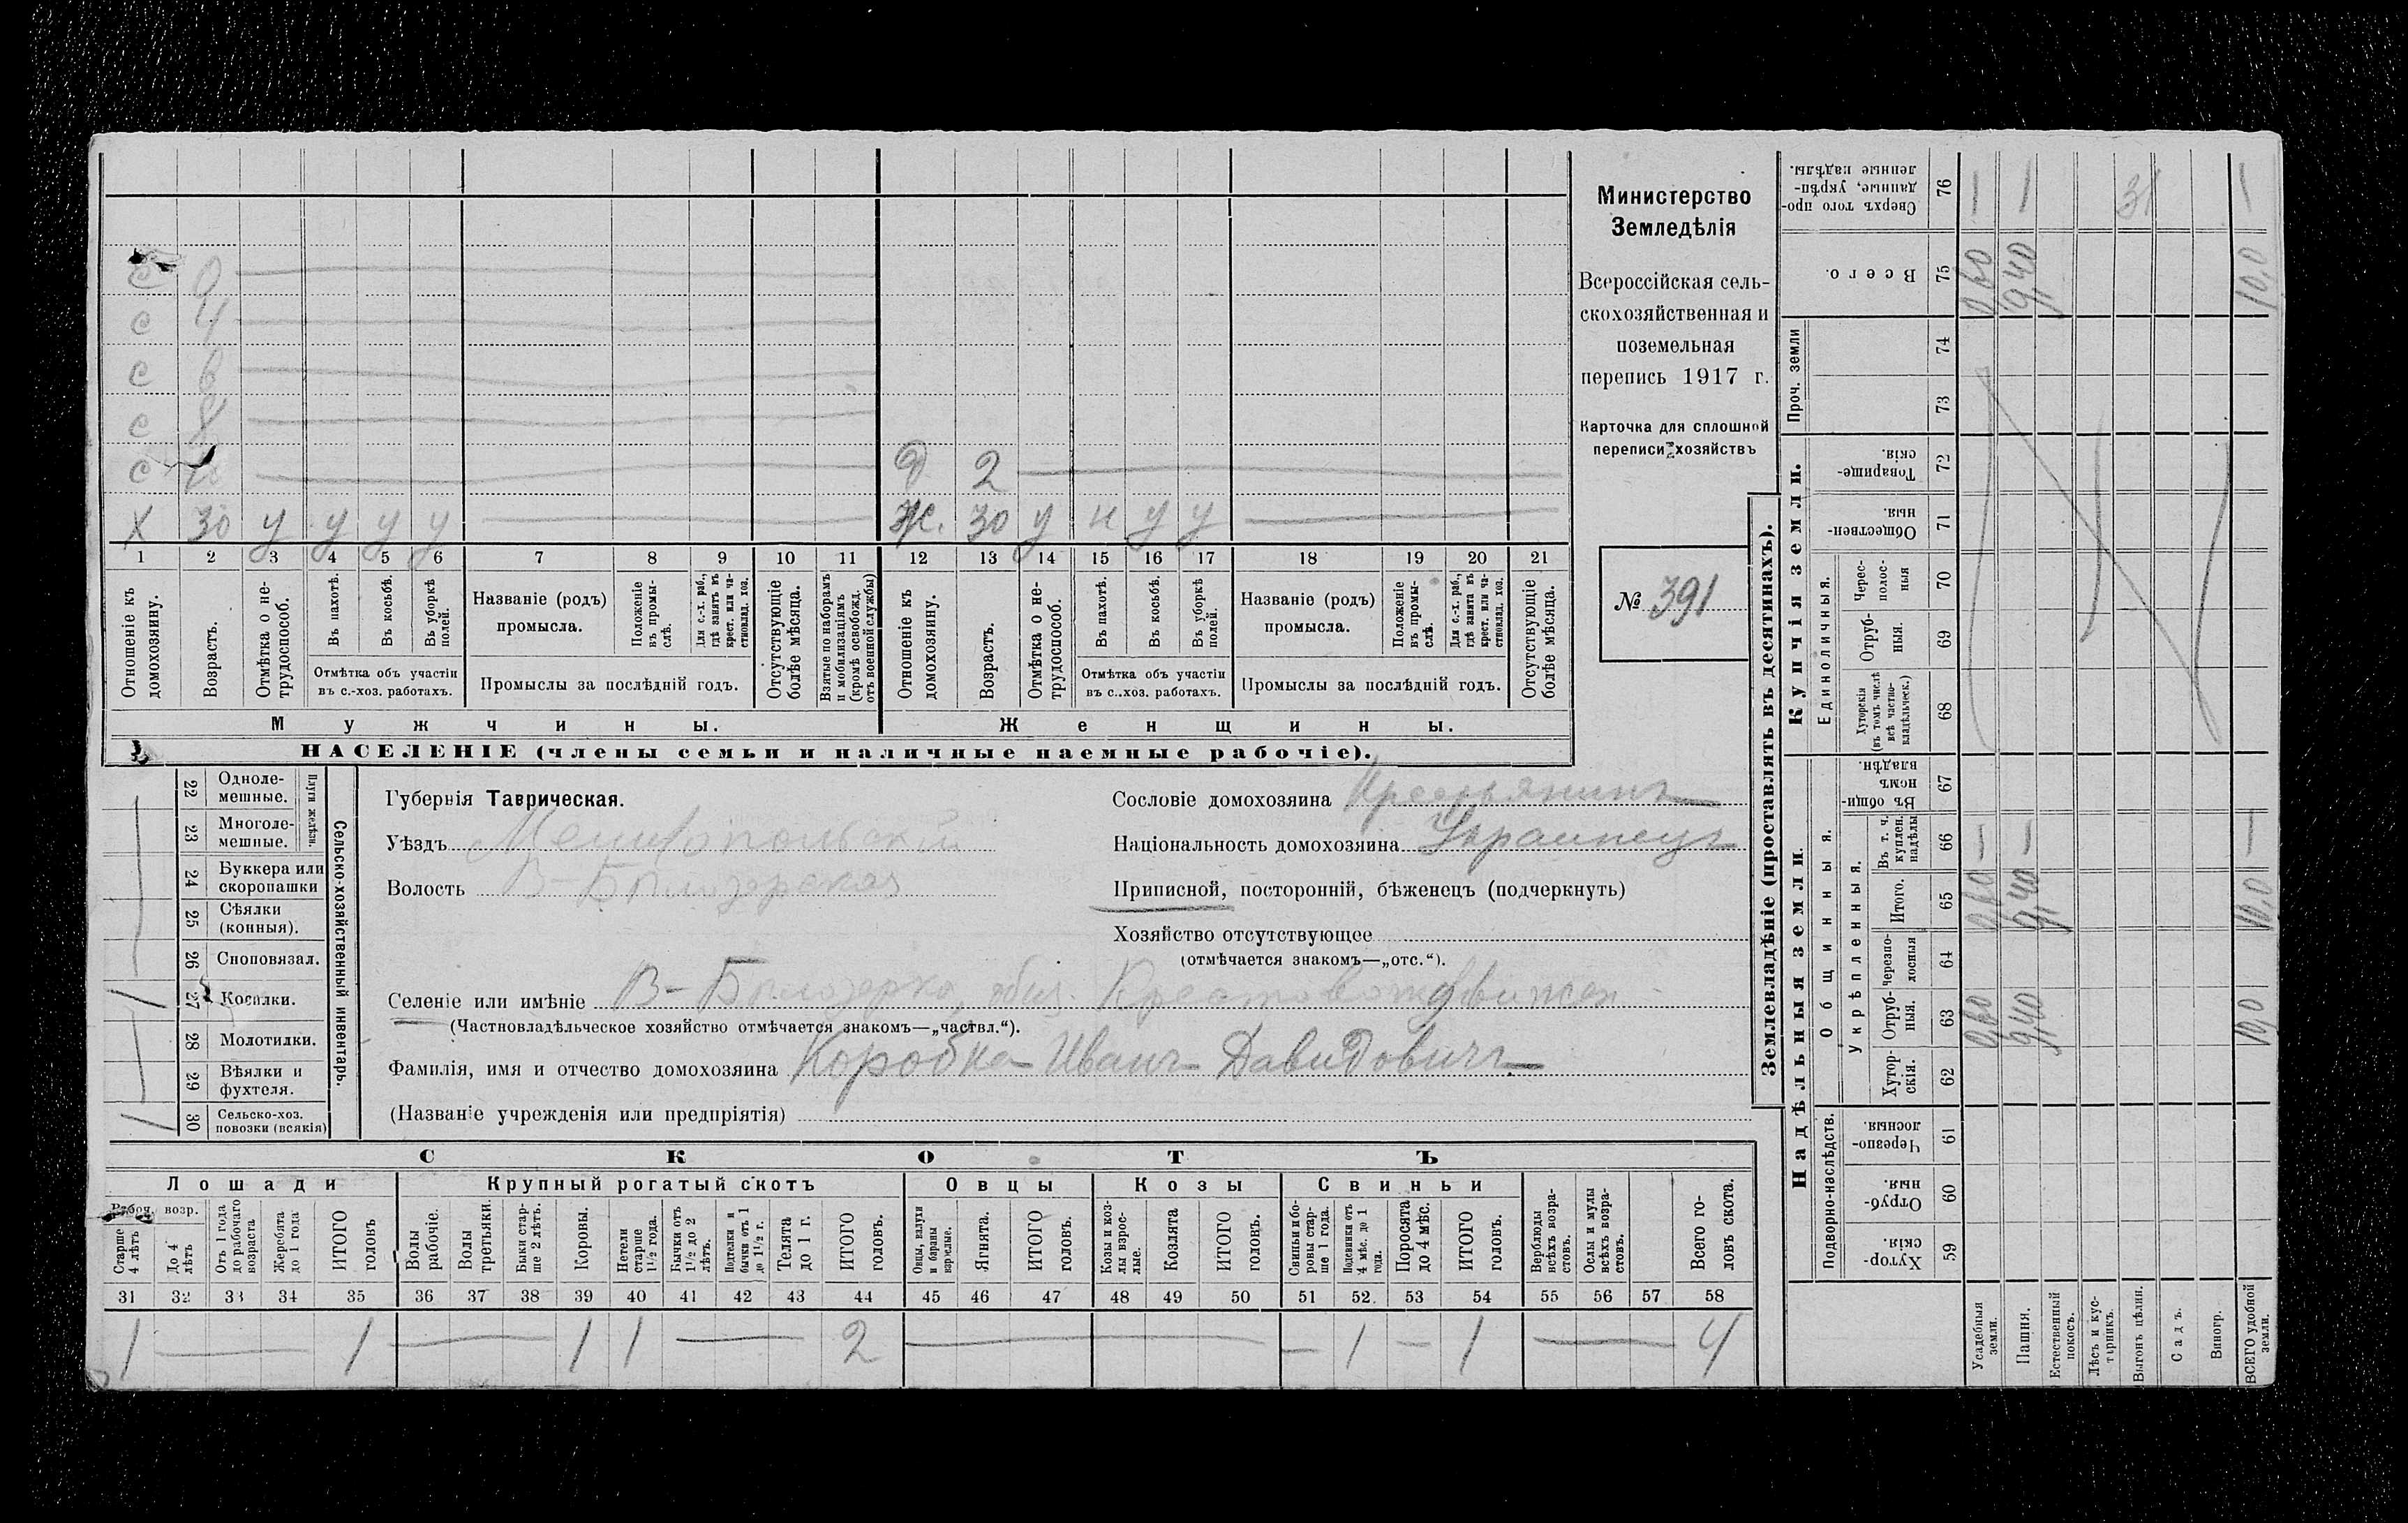 Министерство
Земледѣлія
Всероссійская сель-
скохозяйственная и
поземельная
перепись 1917 г.
Карточка для сплошной
переписи хозяйствъ
№ 391
с
с 4
с 6
с 8
с
Д 2
Х 30 у у у у
Ж. 30 у н у у
1 2 3 4 5 6 7 8 9 10 11 12 13 14 15 16 17 18 19 20 21
Отношеніе къ домохозяину.
Возрастъ.
Отмѣтка о не-трудоспособ.
Въ пахотѣ.
Въ косьбѣ.
Въ уборкѣ полей.
Отмѣтка объ участіи
въ с.-хоз. работахъ.
Названіе (родъ)
промысла.
Положеніе въ промы-слѣ.
Для с.-х. раб., гдѣ занятъ въ крест. или ча-стновлад. хоз.
Промыслы за послѣдній годъ.
Отсутствующіе болѣе мѣсяца.
Взятые по наборамъ и мобилизаціямъ (кромѣ освобожд. отъ военной службы)
Отношеніе къ домохозяину.
Возрастъ.
Отмѣтка о не-трудоспособ.
Въ пахотѣ.
Въ косьбѣ.
Въ уборкѣ полей.
Отмѣтка объ участіи
въ с.-хоз. работахъ.
Названіе (родъ)
промысла.
Положеніе въ промы-слѣ.
Для с.-х. раб., гдѣ занята въ крест. или ча-стновлад. хоз.
Промыслы за послѣдній годъ.
Отсутствующіе болѣе мѣсяца.
Мужчины.
Женщины.
НАСЕЛЕНІЕ (члены семьи и наличные наемные рабочіе).
Сельско-хозяйственный инвентарь.
Плуги желѣзн.
22 Одноле-мешные.
23 Многоле-мешные.
24 Буккера или скоропашки
25 Сѣялки (конныя).
26 Сноповязал.
27 Косилки. 1
28 Молотилки.
29 Вѣялки и фухтеля.
30 Сельско-хоз. повозки (всякія) 1
Губернія Таврическая.
Уѣздъ Мелитопольскій
Волость В-Бѣлозерская
Сословіе домохозяина Крестьянинъ
Національность домохозяина Украинецъ
Приписной, посторонній, бѣженецъ (подчеркнуть)
Хозяйство отсутствующее
(отмѣчается знакомъ—„отс.“).
Селеніе или имѣніе В-Бѣлозерка, общ Крестовоздвижен
(Частновладѣльческое хозяйство отмѣчается знакомъ—„частвл.“).
Фамилія, имя и отчество домохозяина Коробка Иванъ Давидовичъ
(Названіе учрежденія или предпріятія)
СКОТЪ
Лошади Крупный рогатый скотъ Овцы Козы Свиньи
Рабоч. возр.
Старше 4 лѣтъ
До 4 лѣтъ
Отъ 1 года до рабочаго возраста
Жеребята до 1 года
ИТОГО головъ
Волы рабочіе.
Волы третьяки.
Быки стар-ше 2 лѣтъ.
Коровы.
Нетели старше 1½ года.
Бычки отъ 1½ до 2 лѣтъ.
Подтелки и бычки отъ 1 до 1½ г.
Телята до 1 г.
ИТОГО головъ.
Овцы, валухи и бараны взрослые.
Ягнята.
ИТОГО головъ.
Козы и коз-лы взрос-лые.
Козлята
ИТОГО головъ.
Свиньи и бо-ровы стар-ше 1 года.
Подсвинки отъ 4 мѣс. до 1 года.
Поросята до 4 мѣс.
ИТОГО головъ.
Верблюды всѣхъ возра-стовъ.
Ослы и мулы всѣхъ возра-стовъ.
Всего го-ловъ скота.
31 32 33 34 35 36 37 38 39 40 41 42 43 44 45 46 47 48 49 50 51 52 53 54 55 56 57 58
1 — 1 — 1 1 — 2 — — 1 — 1 — 4
Землевладѣніе (проставлять въ десятинахъ).
Надѣльныя земли.
Купчія земли.
Проч. земли
Подворно-наслѣдств.
Общинныя.
Укрѣпленныя.
Единоличныя.
Сверхъ того про-данные, укрѣп-ленные надѣлы. 76
Всего. 75
74
73
Товарище-скія. 72
Обществен-ныя. 71
Черес-полос-ныя 70
Отруб-ныя. 69
Хуторскія (въ томъ числѣ всѣ частно-владѣльческ.) 68
Въ общин-номъ владѣн. 67
Въ т. ч. куплен. надѣлы 66
Итого. 65
Черезпо-лосныя 64
Отруб-ныя. 63
Хутор-скія. 62
Черезпо-лосныя 61
Отруб-ныя. 60
Хутор-скія. 59
Усадебныя земли.
Пашня.
Естественный покосъ.
Лѣсъ и кус-тарникъ.
Выгонъ цѣлин.
Садъ.
Виногр.
ВСЕГО удобной земли.
0,60 9,40 10,0
0,60 9,40 10,0
0,60 9,40 10,0